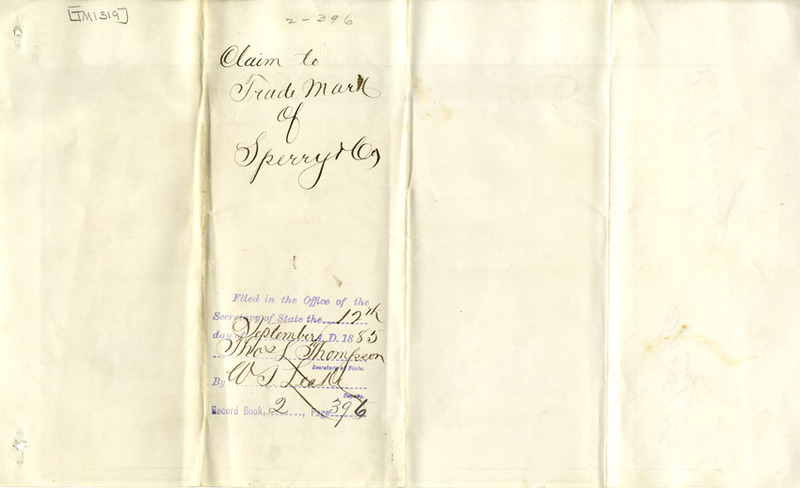 [TM1319]
2-396
Claim to
Trade Mark
Of
Sperry & Co
Filed in the Office of the
Secretary of State the 12th
day of September A. D. 1885
Thos L Thompson
Secretary of State.
By W T Leake
Deputy.
Record Book, 2, Page 396